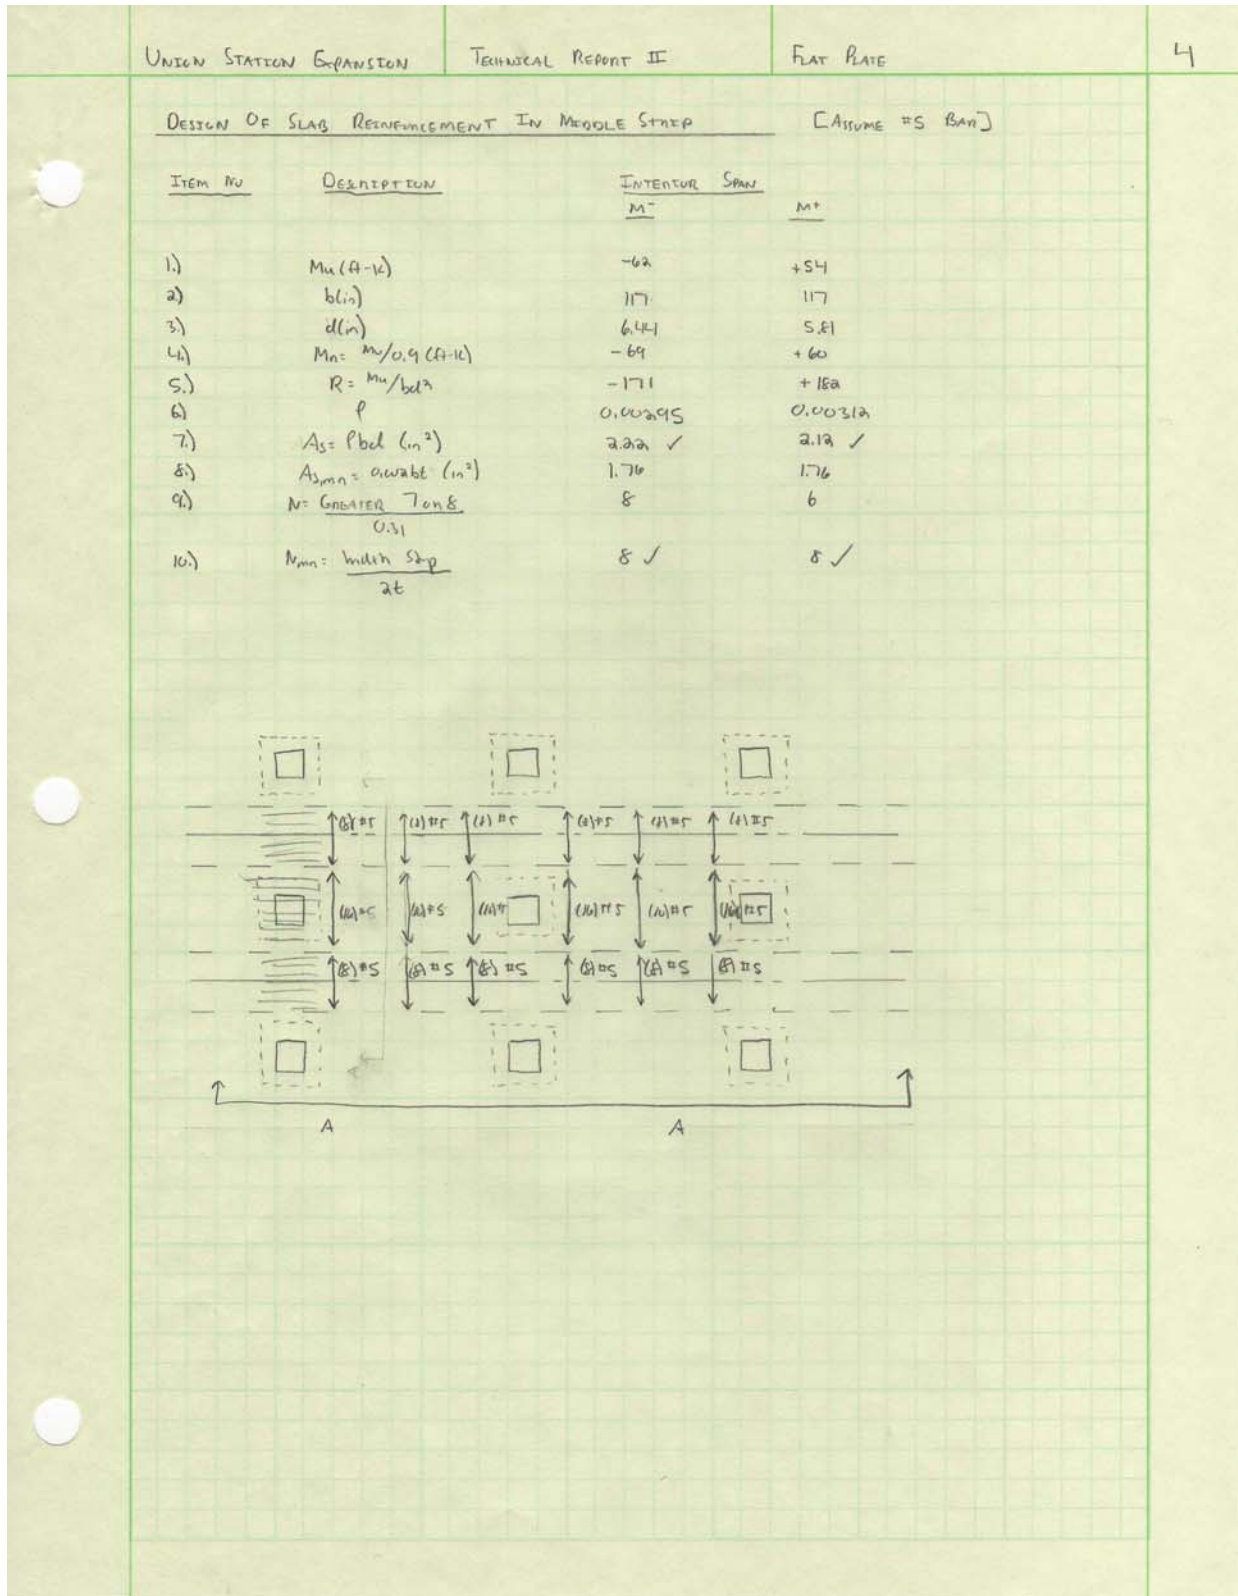 UNION STATION EXPANSION TECHNICAL REPORT II FLAT PLATE 4
DESIGN OF SLAB REINFORCEMENT IN MIDDLE STRIP [ASSUME #5 BAR]
ITEM NO DESCRIPTION INTERIOR SPAN
M⁻ M⁺
1.) Mu (ft-k) -62 +54
2) b(in) 117 117
3.) d(in) 6.44 5.81
4.) Mn= Mu/0.9 (ft-k) -69 +60
5.) R= Mu/bd² -171 +182
6) ρ 0.00295 0.00312
7.) As= ρbd (in²) 2.22 ✓ 2.12 ✓
8.) As,min= 0.002bt (in²) 1.76 1.76
9.) N= GREATER 7 or 8 8 6
0.31
10.) Nmin= width strip 8 ✓ 8 ✓
2t
(8) #5 (8) #5 (8) #5 (8) #5 (8) #5 (8) #5
(16) #5 (16) #5 (16) # (16) #5 (16) #5 (16) #5
(8) #5 (8) #5 (8) #5 (8) #5 (8) #5 (8) #5
A A